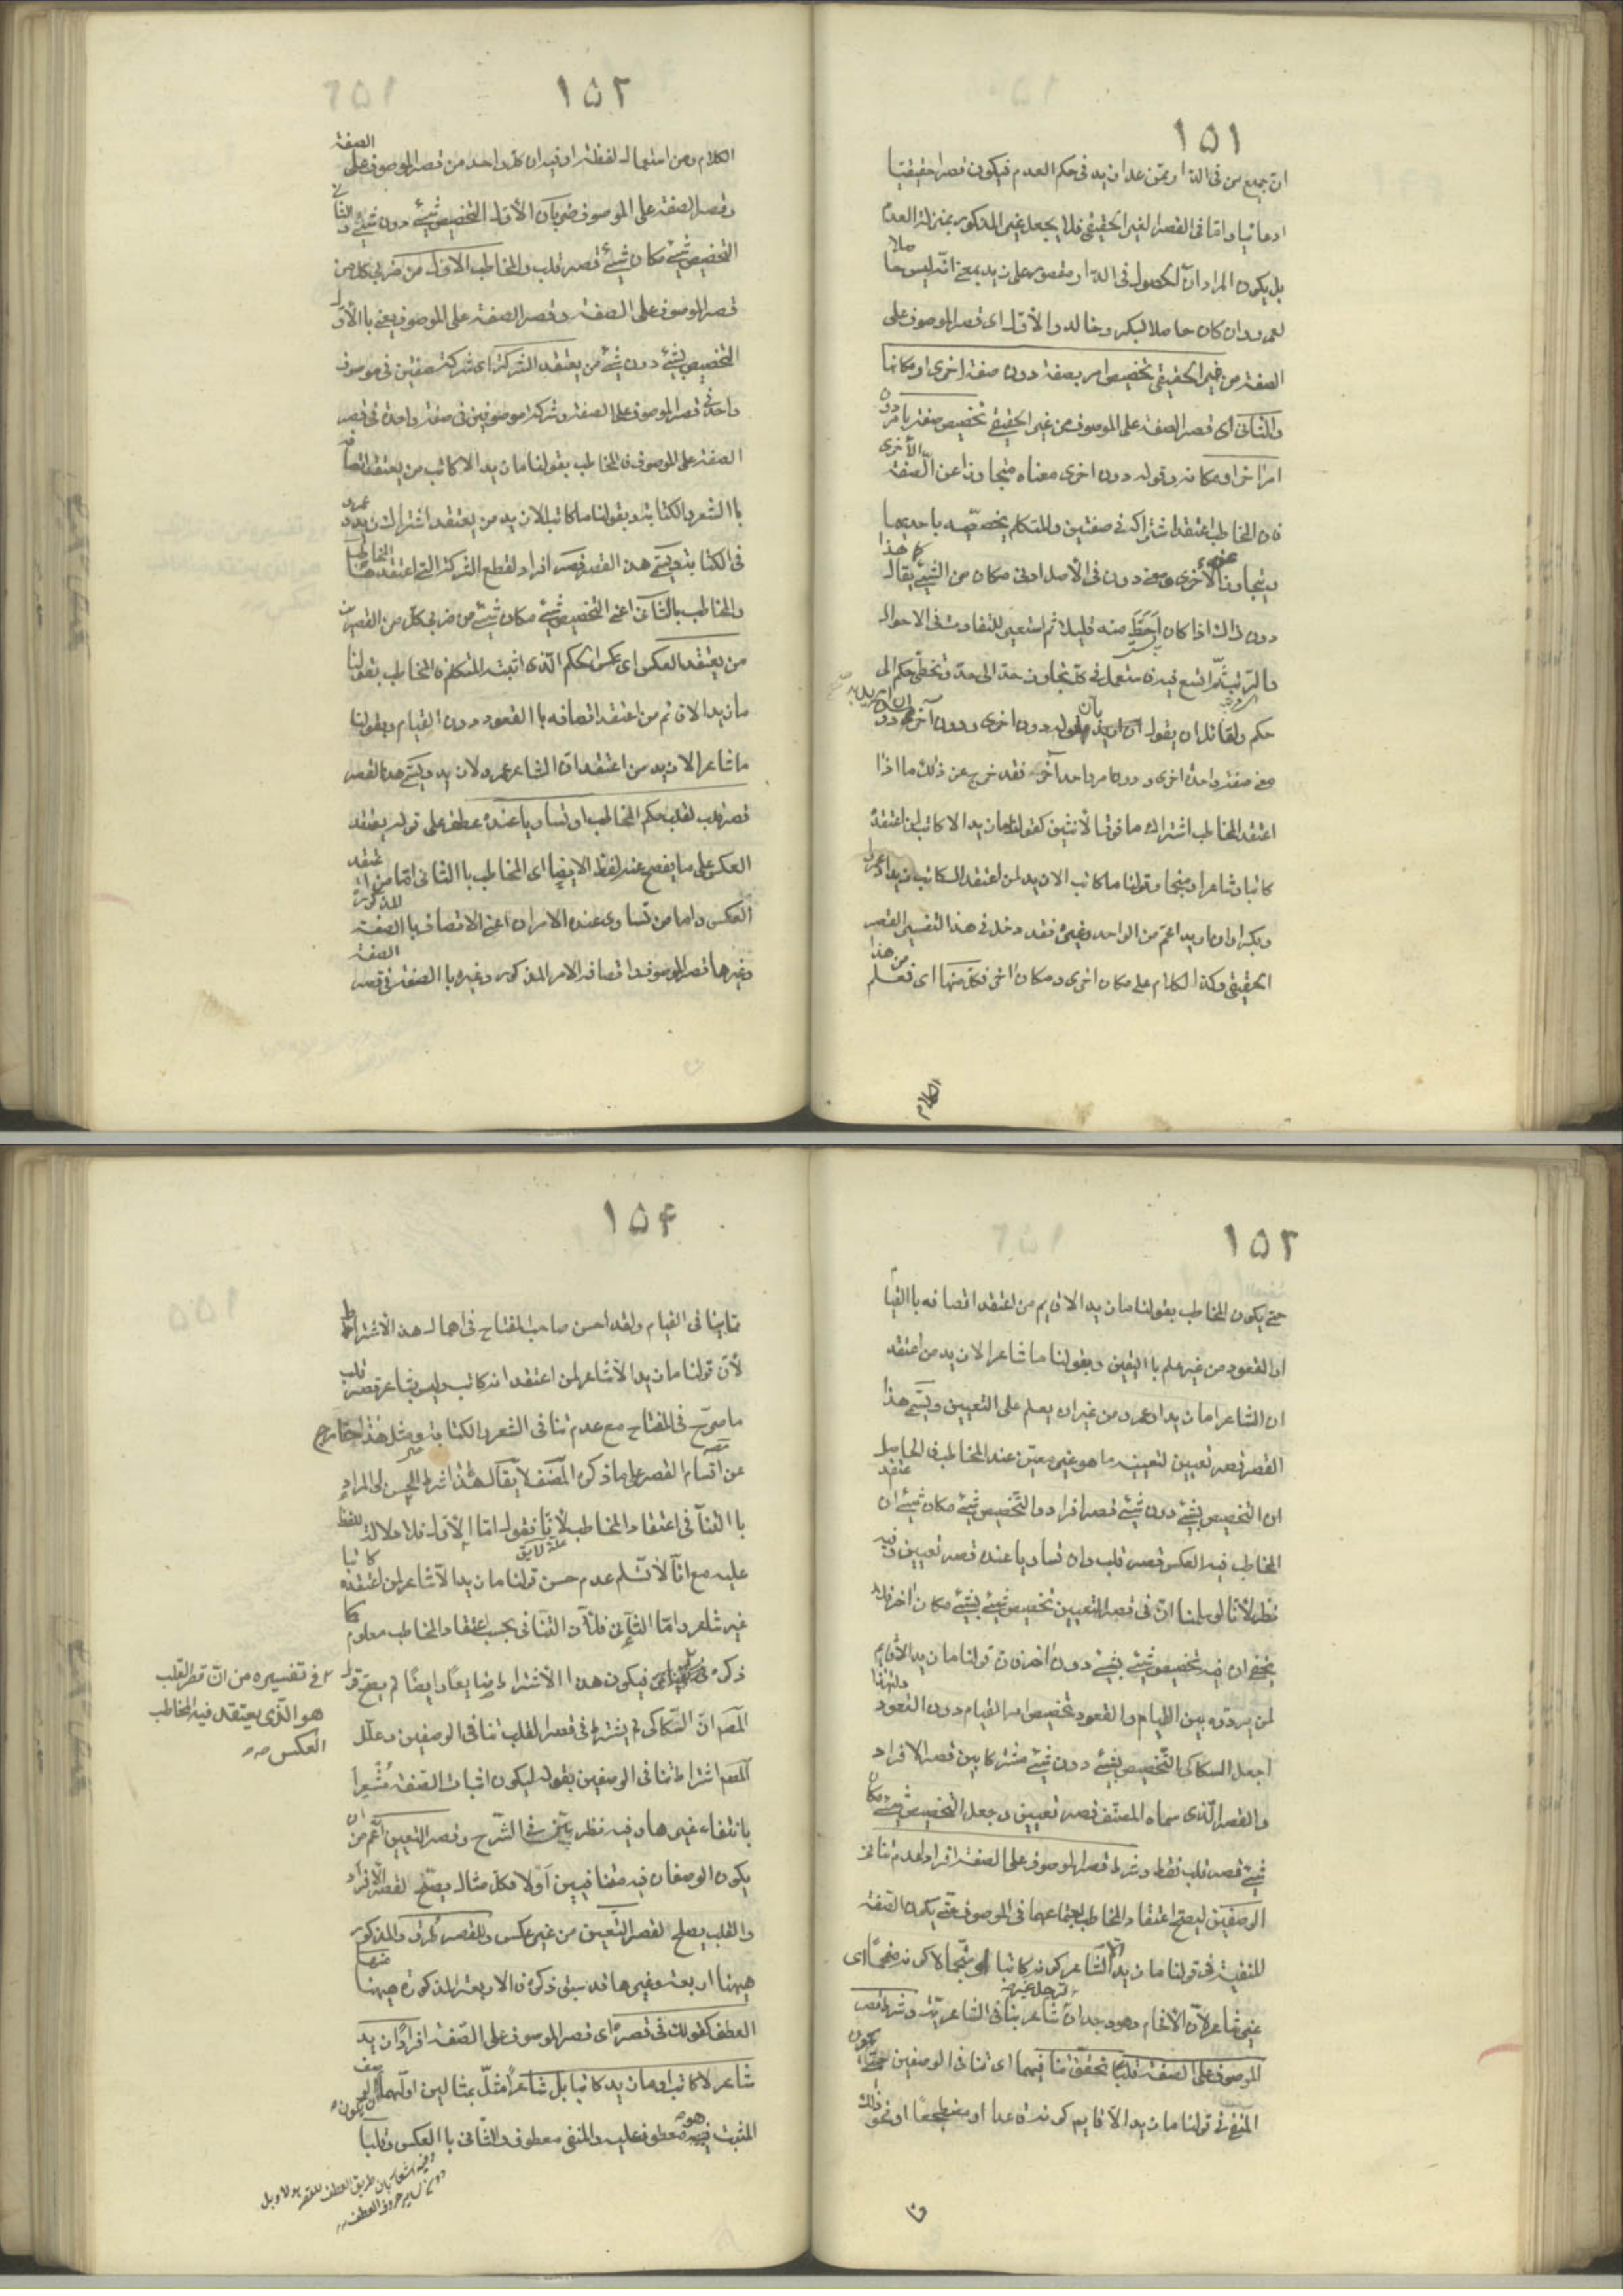 ١٥١
ان جميع من فى الدار ممن عدا زيد فى حكم العدم فيكون قصرا حقيقيا
ادعائيا واما فى القصر الغير الحقيقى فلا يجعل غير المذكور بمنزلة العدم
بل يكون المراد ان الحصول فى الدار مقصور على زيد بمعنى انه ليس حاصلا
لعمرو وان كان حاصلا لبكر وخالد والأول اى قصر الموصوف على
الصفة من غير الحقيقى تخصيص امر بصفة دون صفة اخرى او مكانها
والثانى اى قصر الصفة على الموصوف من غير الحقيقى تخصيص صفة بامر دون
امر آخر او مكانه وقوله دون اخرى معناه متجاوزا عن الصفة الأخرى
فان المخاطب اعتقد اشتراكه فى صفتين والمتكلم يخصصه باحديهما
ويتجاوز عن الأخرى ومعنى دون فى الأصل ادنى مكان من الشيئ يقال هذا
دون ذاك اذا كان احط منه قليلا ثم استعير للتفاوت فى الاحوال
والرتب ثم اتسع فيه فاستعمل فى كل تجاوز حد الى حد وتخطى حكم الى
حكم ولقائل ان يقول ان اريد بقوله دون اخرى ودون آخر دون
صفة واحدة اخرى ودون امر واحد آخر فقد خرج عن ذلك ما اذا
اعتقد المخاطب اشتراك ما فوق الأثنين كقولنا ما زيد الا كاتب لمن اعتقده
كاتبا وشاعرا ومنجما وقولنا ما كاتب الا زيد لمن اعتقد الكاتب زيدا وعمرا
وبكرا وان اريد اعم من الواحد وغيره فقد دخل فى هذا التفسير القصر
الحقيقى وكذا الكلام على مكان اخرى ومكان آخر فكل منهما اى فعلم من هذا
الكلام
١٥٢
الكلام ومن استعماله لفظة او فيه ان كل واحد من قصر الموصوف على الصفة
وقصر الصفة على الموصوف ضربان الأول التخصيص بشيئ دون شيئ والثانى
التخصيص بشيئ مكان شيئ قصر قلب والمخاطب الأول من ضربى كل من
قصر الموصوف على الصفة وقصر الصفة على الموصوف يعنى بالأول
التخصيص بشيئ دون شيئ من يعتقد الشركة اى شركة صفتين فى موصوف
واحد فى قصر الموصوف على الصفة وشركة موصوفين فى صفة واحدة فى قصر
الصفة على الموصوف فالمخاطب بقولنا ما زيد الا كاتب من يعتقد اتصافه
باالشعر والكتابة وبقولنا ما كاتب الا زيد من يعتقد اشتراك زيد وعمرو
فى الكتابة ويسمى هذا القصر قصر افراد لقطع الشركة التى اعتقدها المخاطب
والمخاطب بالثانى اعنى التخصيص بشيئ مكان شيئ من ضربى كل من القصرين
من يعتقد العكس اى عكس الحكم الذى اثبته المتكلم فالمخاطب بقولنا
ما زيد الا قائم من اعتقد اتصافه باالقعود دون القيام وبقولنا
ما شاعر الا زيد من اعتقد ان الشاعر عمرو لا زيد ويسمى هذا القصر
قصر قلب لقلب حكم المخاطب او تساويا عنده عطف على قوله يعتقد
العكس على ما يفصح عنه لفظ الايضاح اى المخاطب باالثانى اما من يعتقد
العكس واما من تساوى عنده الامران اعنى الاتصاف باالصفة المذكورة
وغيرها فى قصر الموصوف واتصاف الامر المذكور وغيره باالصفة فى قصر الصفة
١٥٣
حتى يكون المخاطب بقولنا ما زيد الا قايم من اعتقد اتصافه باالقيام
او القعود من غير علم باالتعيين وبقولنا ما شاعر الا زيد من اعتقد
ان الشاعر اما زيد او عمرو من غير ان يعلم على التعيين ويسمى هذا
القصر قصر تعيين لتعيينه ما هو غير معين عند المخاطب فالحاصل
ان التخصيص بشيئ دون شيئ قصر افراد والتخصيص بشيئ مكان شيئ ان اعتقد
المخاطب فيه العكس قصر قلب وان تساويا عنده قصر تعيين وفيه
نظر لأنا لو سلمنا ان فى قصر التعيين تخصيص شيئ بشيئ مكان آخر فلا
يخفى ان فيه تخصيص شيئ بشيئ دون آخر فان قولنا ما زيد الا قايم
لمن يردده بين القيام والقعود تخصيص له بالقيام دون القعود ولهذا
جعل السكاكى التخصيص بشيئ دون شيئ مشتركا بين قصر الافراد
والقصر الذى سماه المصنف قصر تعيين وجعل التخصيص بشيئ مكان
شيئ قصر قلب فقط وشرط قصر الموصوف على الصفة افرادا عدم تنافى
الوصفين ليصح اعتقاد المخاطب اجتماعهما فى الموصوف حتى يكون الصفة
المنفية فى قولنا ما زيد الا شاعر كونه كاتبا او منجما لا كونه مفحما اى
غير شاعر لأن الأفحام وهو وجدان الرجل غير شاعر ينافى الشاعرية وشرط قصر
الموصوف على الصفة قلبا تحقق تنافيهما اى تنافى الوصفين حتى يكون
المنفى فى قولنا ما زيد الا قايم كونه قاعدا او مضطجعا او نحو ذلك
١٥٤
مما ينافى القيام ولقد احسن صاحب المفتاح فى اهمال هذا الاشتراط
لأن قولنا ما زيد الا شاعر لمن اعتقد انه كاتب وليس بشاعر قصر قلب
ما صرح فى المفتاح مع عدم تنافى الشعر والكتابة ومثل هذا خارج
عن اقسام القصر على ما ذكره المصنف لا يقال هذا شرط الحسن او المراد
باالتنافى فى اعتقاد المخاطب لأنا نقول اما الأول فلا دلالة للفظ
عليه مع انا لا نسلم عدم حسن قولنا ما زيد الا شاعر لمن اعتقده كاتبا
غير شاعر واما الثانى فلأن التنافى بحسب اعتقاد المخاطب معلوم مما
ذكره فيكون هذا الأشتراط ضايعا وايضا لم يصح قول
المصم ان السكاكى لم يشترط فى قصر القلب تنافى الوصفين وعلل
المصم اشتراط تنافى الوصفين بقوله ليكون اثبات الصفة مشعرا
بانتفاء غيرها وفيه نظر بين فى الشرح وقصر التعيين اعم من ان
يكون الوصفان فيه متنافيين أولا فكل مثال يصلح لقصر الأفراد
والقلب يصلح لقصر التعيين من غير عكس وللقصر طرق والمذكور
ههنا اربعة وغيرها قد سبق ذكره فالاربعة المذكورة ههنا منها
العطف كقولك فى قصره اى قصر الموصوف على الصفة افرادا زيد
شاعر لا كاتب او ما زيد كاتبا بل شاعر مثل بمثالين اولهما
المثبت فيه هو معطوف عليه والمنفى معطوف والثانى باالعكس وقلبا
فى تفسيره من ان قصر القلب
هو الذى يعتقد فيه المخاطب
العكس
وفيه اشعار بان طريق العطف للقصر هو لا وبل
دون ساير حروف العطف